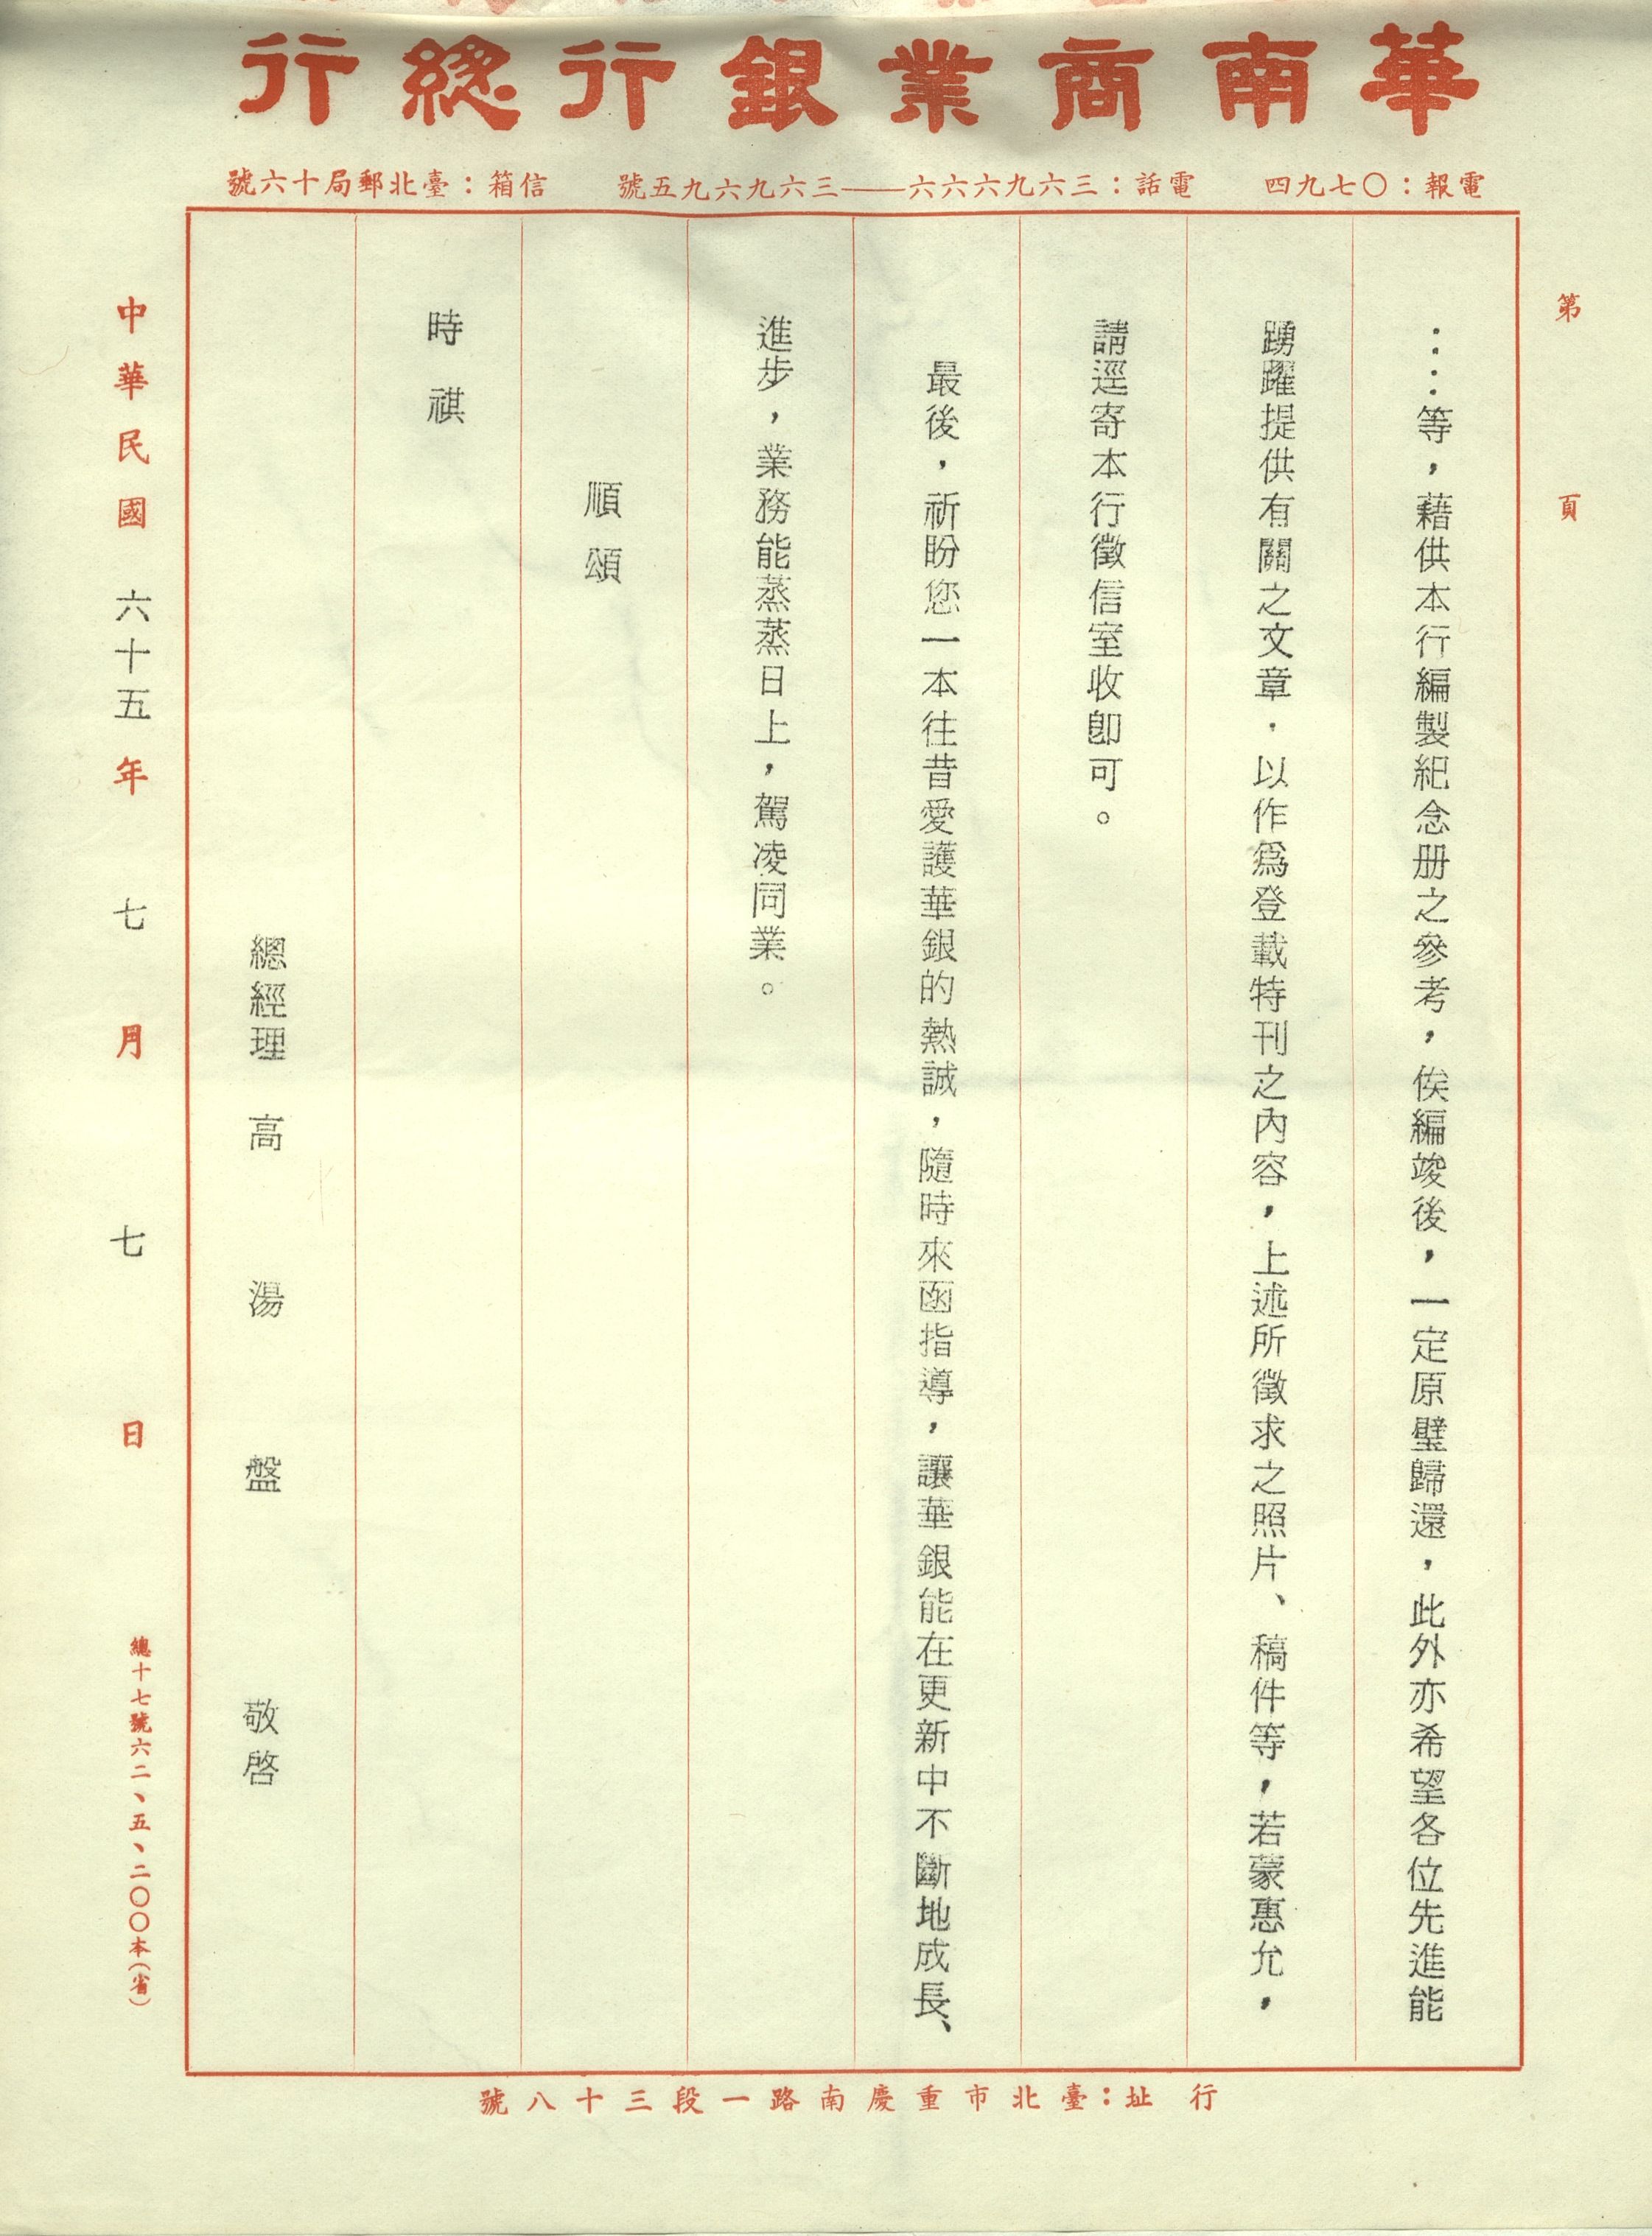 華南商業銀行總行
電報：〇七九四
電話：三六九六六六——三六九六九五號
信箱：臺北郵局十六號
第　頁
：：等，藉供本行編製紀念册之參考，俟編竣後，一定原璧歸還，此外亦希望各位先進能
踴躍提供有關之文章．以作爲登載特刊之內容，上述所徵求之照片、稿件等，若蒙惠允，
請逕寄本行徵信室收卽可。
最後，祈盼您一本往昔愛護華銀的熱誠，隨時來函指導，讓華銀能在更新中不斷地成長、
進步，業務能蒸蒸日上，駕凌同業。
順頌
時祺
總經理 高湯盤 敬啓
中華民國六十五年七月七日
總十七號六二、五、二〇〇本（省）
行址：臺北市重慶南路一段三十八號